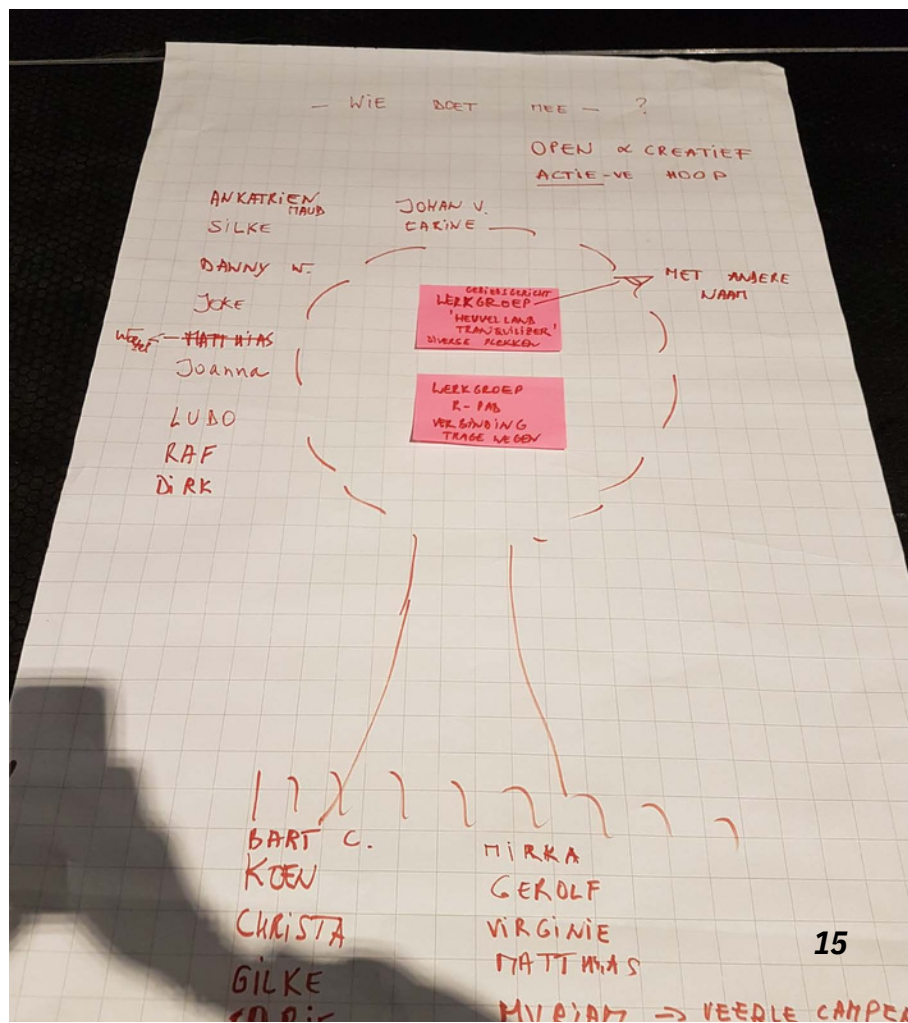 — WIE DOET MEE — ?
OPEN & CREATIEF
ACTIE-VE HOOP
ANKATRIEN
MAUD
SILKE
DANNY W.
JOKE
MATTHIAS
Joanna
LUDO
RAF
DIRK
JOHAN V.
CARINE
GEBIEDSGERICHT
WERKGROEP
'HEUVELLAND
TRANQUILIZER'
DIVERSE PLEKKEN
MET ANDERE
NAAM
WERKGROEP
R-PAD
VERBINDING
TRAGE WEGEN
BART C.
KOEN
CHRISTA
GILKE
MIRKA
GEROLF
VIRGINIE
MATTHIAS
MYRIAM → VEERLE CAMPER
15